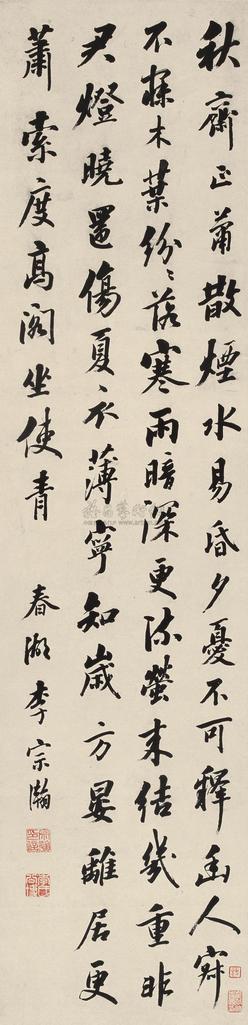 秋齋正蕭散煙水易昏夕憂不可釋幽人寂
不寐木葉紛紛落寒雨暗深更流螢來結幾重非
君燈曉還傷夏衣薄寧知歲方晏離居更
蕭索度高閣坐使青
春湖李宗瀚